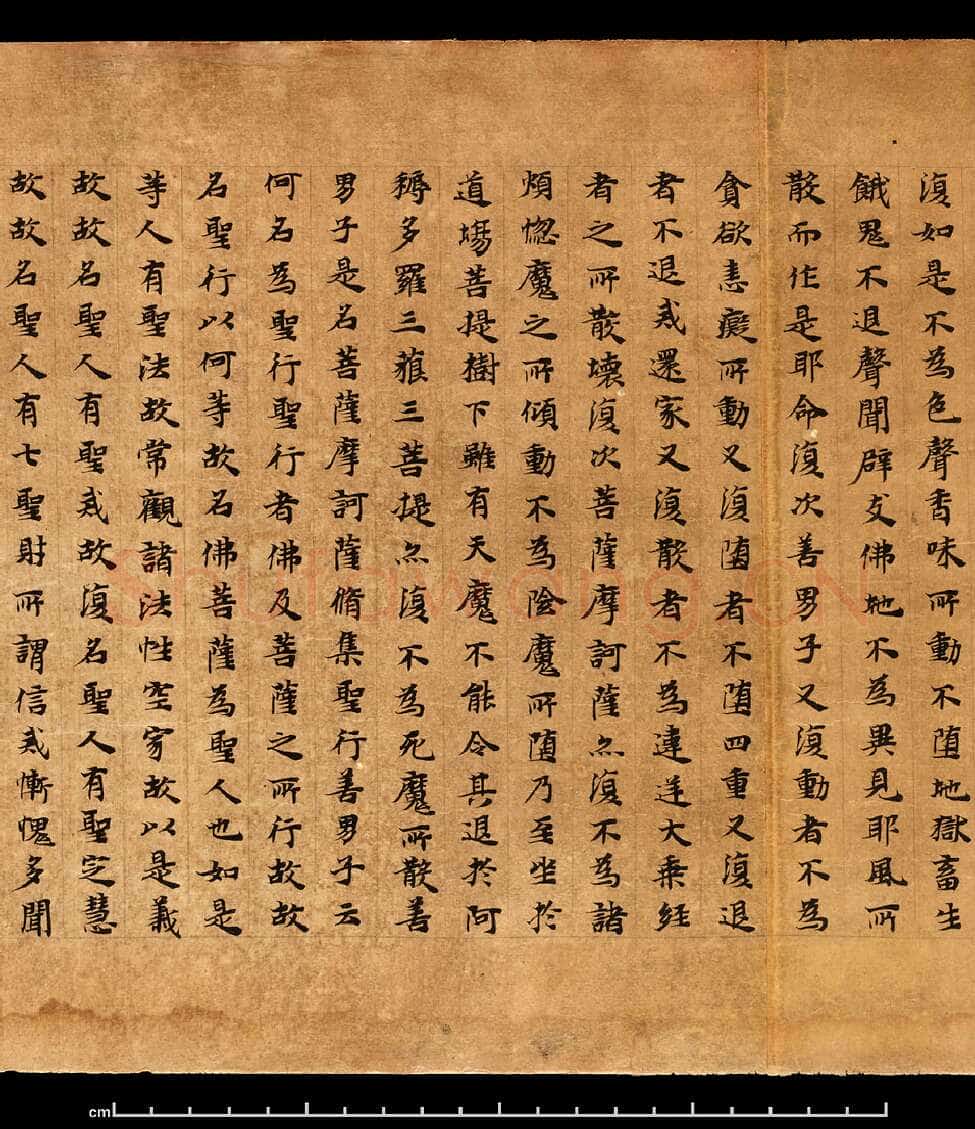 復如是不為色聲香味所動不堕地獄畜生
餓鬼不退聲聞辟支佛地不為異見耶風所
散而作是耶命復次善男子又復動者不為
貪欲恚癡所動又復堕者不堕四重又復退
者不退戒還家又復散者不為違逆大乘經
者之所散壞復次菩薩摩訶薩亦復不為諸
煩惚魔之所傾動不為陰魔所堕乃至坐於
道場菩提樹下雖有天魔不能令其退於阿
耨多羅三藐三菩提亦復不為死魔所散善
男子是名菩薩摩訶薩脩集聖行善男子云
何名為聖行聖行者佛及菩薩之所行故故
名聖行以何等故名佛菩薩為聖人也如是
等人有聖法故常觀諸法性空寂故以是義
故故名聖人有聖戒故復名聖人有聖定慧
故故名聖人有七聖財所謂信戒慚愧多聞
Shufawang.CN
cm